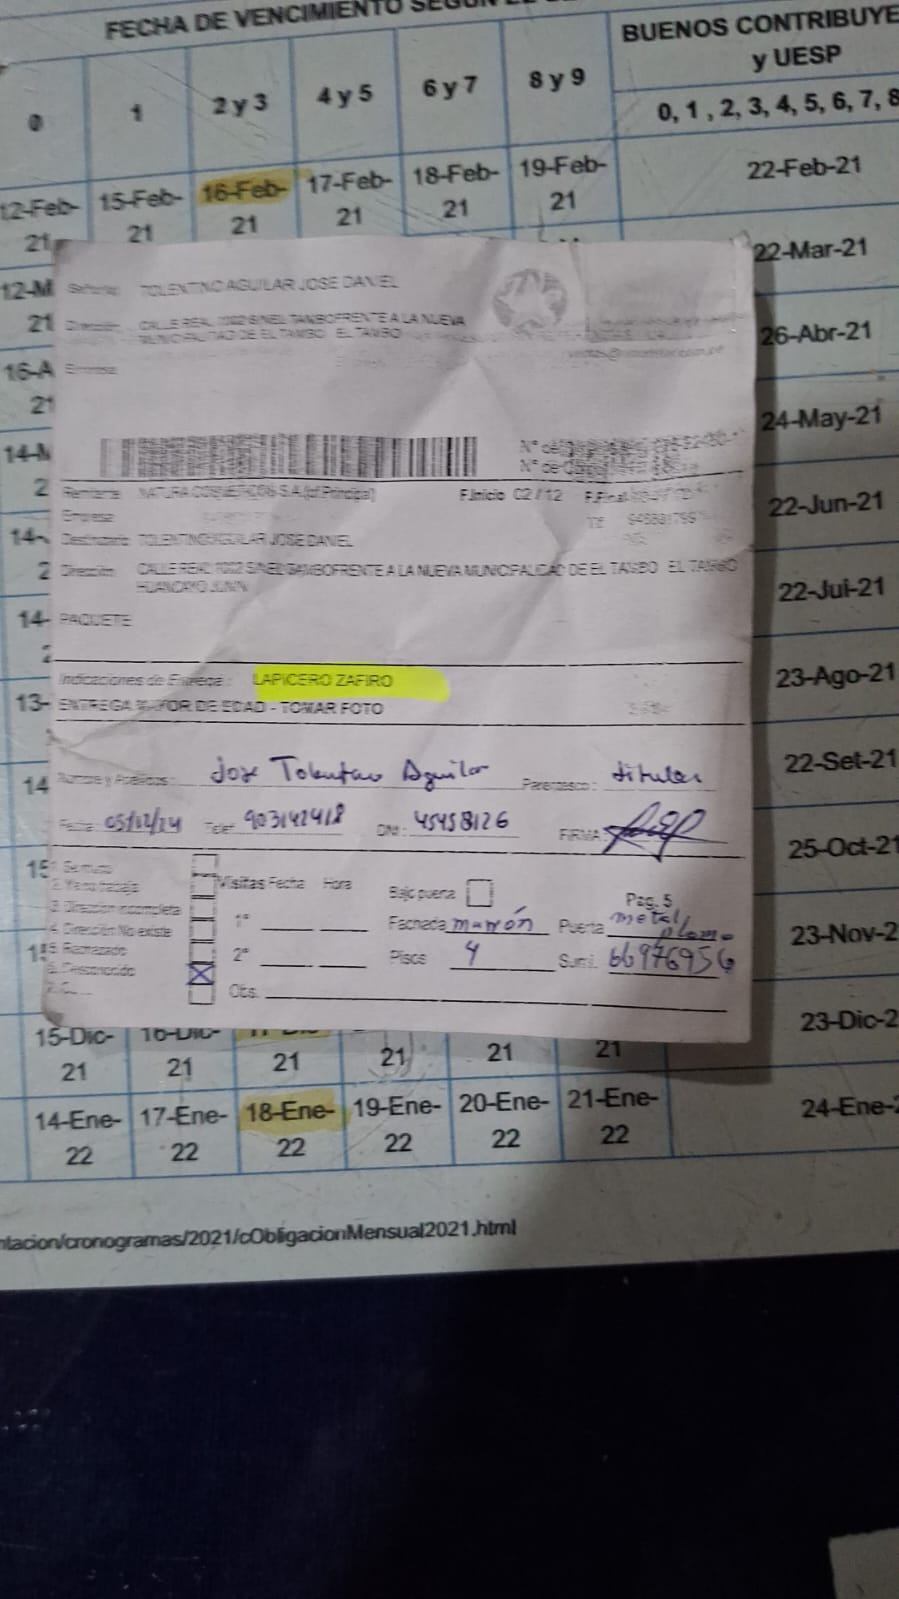 FECHA DE VENCIMIENTO SEGÚN EL
BUENOS CONTRIBUYE
y UESP
0 1 2 y 3 4 y 5 6 y 7 8 y 9
0, 1 , 2, 3, 4, 5, 6, 7, 8
12-Feb-21 15-Feb-21 16-Feb-21 17-Feb-21 18-Feb-21 19-Feb-21 22-Feb-21
22-Mar-21
26-Abr-21
24-May-21
22-Jun-21
22-Jul-21
23-Ago-21
22-Set-21
25-Oct-21
23-Nov-2
23-Dic-2
Señores: TOLENTINO AGUILAR JOSE DANIEL
Dirección: CALLE REAL 1002 S/N EL TAMBO FRENTE A LA NUEVA
MUNICIPALIDAD DE EL TAMBO EL TAMBO
Empresa:
N° de
N° de
Remitente: NATURA COSMETICOS S.A. (of.Principal) F.Inicio 02/12 F.Final
Empresa
Destinatario: TOLENTINO AGUILAR JOSE DANIEL
Dirección: CALLE REAL 1002 S/N EL TAMBO FRENTE A LA NUEVA MUNICIPALIDAD DE EL TAMBO EL TAMBO
HUANCAYO JUNIN
PAQUETE
Indicaciones de Entrega : LAPICERO ZAFIRO
ENTREGA MAYOR DE EDAD - TOMAR FOTO
Nombre y Apellidos : Jose Tolentino Aguilar Parentesco : titular
Fecha: 05/12/24 Telef: 903142418 DNI : 45458126 FIRMA:
1. Se mudo
2. Ya no trabaja
3. Direccion incompleta
4. Dirección No existe
5. Rechazado
6. Desconocido
Visitas Fecha Hora Bajo puerta Pag. 5
1° Fachada marrón Puerta metal plomo
2° Pisos 4 Sumi. 66976956
Obs.
15-Dic-21 16-Dic-21 21 21 21 21
14-Ene-22 17-Ene-22 18-Ene-22 19-Ene-22 20-Ene-22 21-Ene-22 24-Ene-
ntacion/cronogramas/2021/cObligacionMensual2021.html